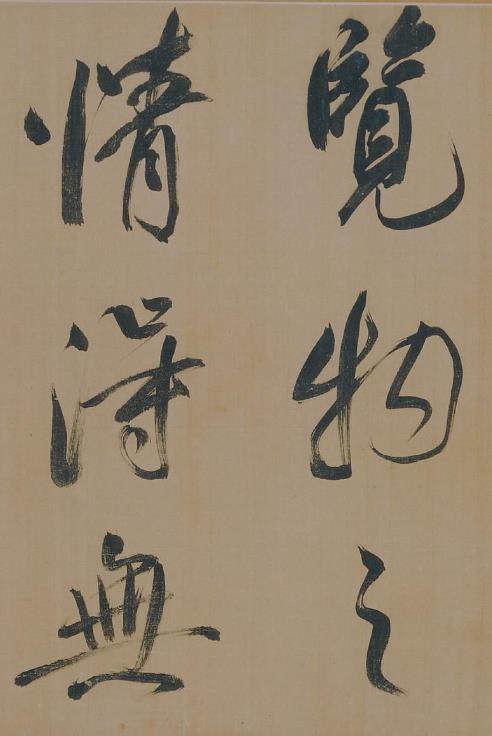 覽物之
情得無